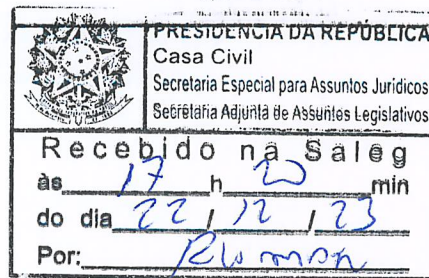 PRESIDÊNCIA DA REPÚBLICA
Casa Civil
Secretaria Especial para Assuntos Jurídicos
Secretaria Adjunta de Assuntos Legislativos
Recebido na Saleg
às 17 h 20 min
do dia 22 / 12 / 23
Por: